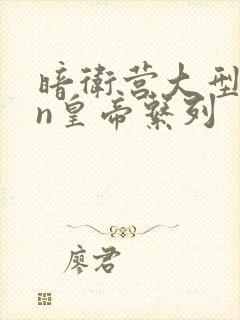 暗衛营大型
n皇帝繫列
廖君